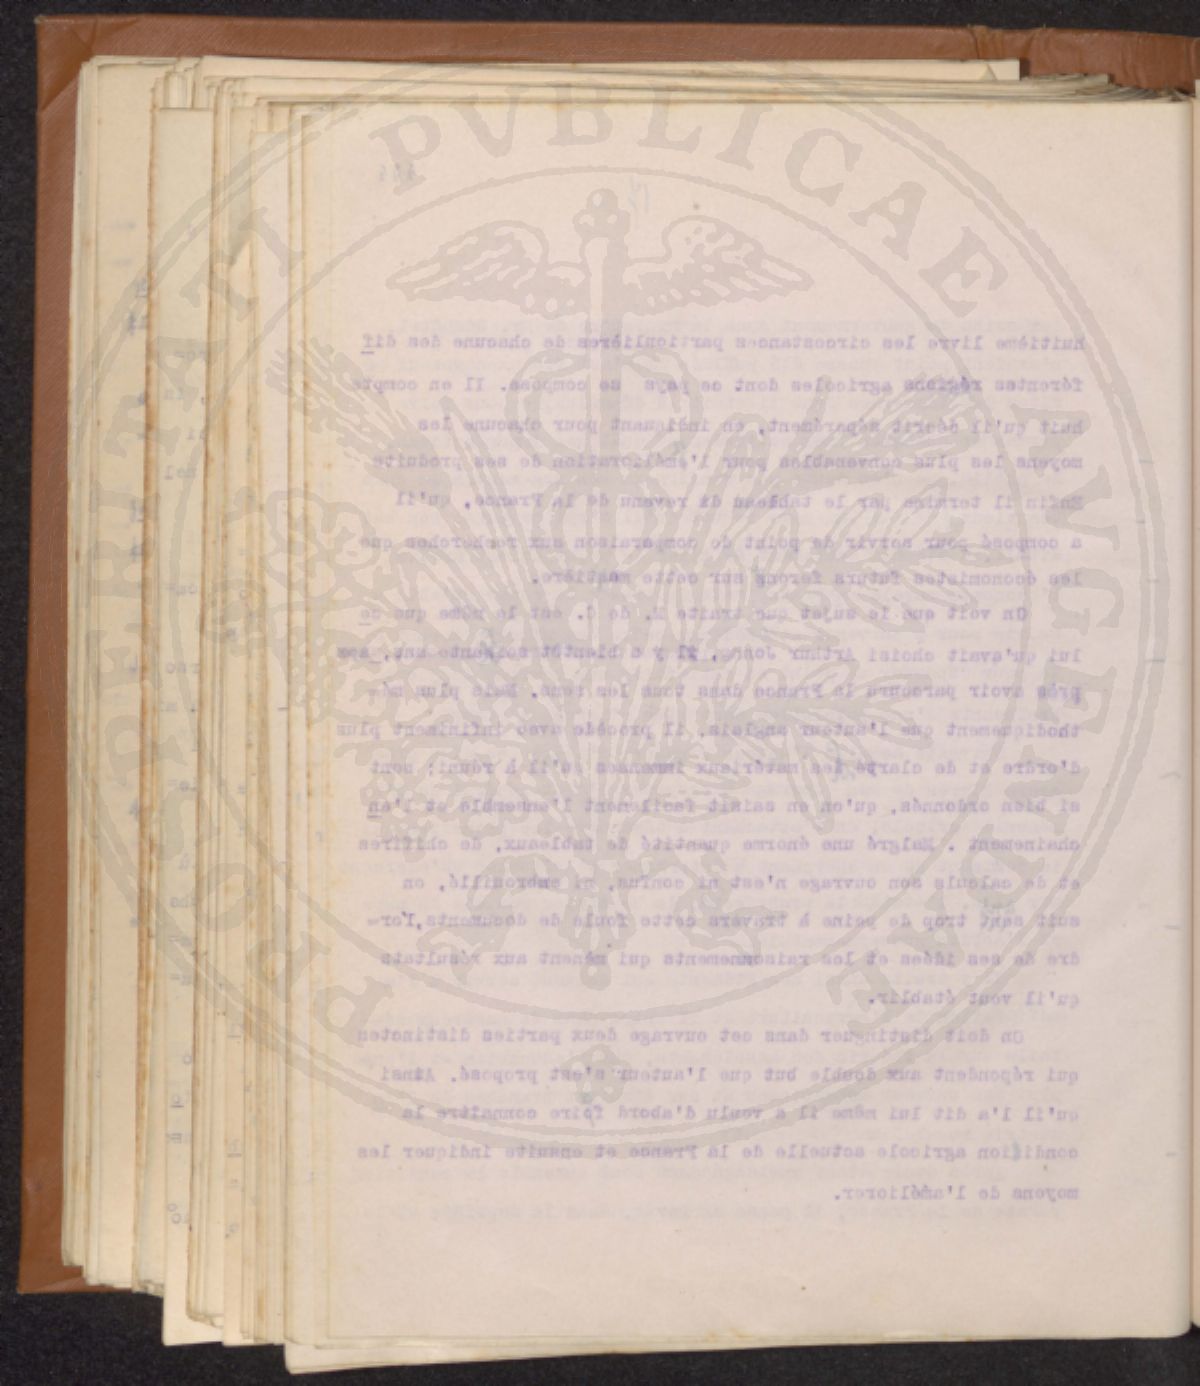 huitième livre les circostances particulières de chacune des dif
férentes régions agricoles dont ce pays se compose. Il en compte
huit qu'il décrit séparément, en indiquant pour chacune les
moyens les plus convenables pour l'amélioration de ses produits
Enfin il termine par le tableau du revenu de la France, qu'il
a composé pour servir de point de comparaison aux recherches que
les économistes futurs ferons sur cette matière.
On voit que le sujet que traite M. de C. est le même que ce
lui qu'avait choisi Arthur il y a bientôt soixante ans,
près avoir parcouru la France dans tous les sens. Mais plus mé-
thodiquement que l'auteur anglais, il procède avec infiniment plus
d'ordre et de clarté les matériaux immenses qu'il à réuni; sont
si bien ordonnés, qu'on en saisit facilement l'ensemble et l'en
chainement . Malgré une énorme quantité de tableaux, de chiffres
et de calculs son ouvrage n'est ni confus, ni embrouillé, on
suit sans trop de peine à travers cette foule de documents, l'or-
dre de ses idées et les raisonnements qui mènent aux résultats
qu'il veut établir.
On doit distinguer dans cet ouvrage deux parties distinctes
qui répondent aux double but que l'auteur s'est proposé. Ainsi
qu'il l'a dit lui même il a voulu d'abord faire connaître la
condition agricole actuelle de la France et ensuite indiquer les
moyens de l'améliorer.
PROSPERITATI PVBLICAE AVGENDAE